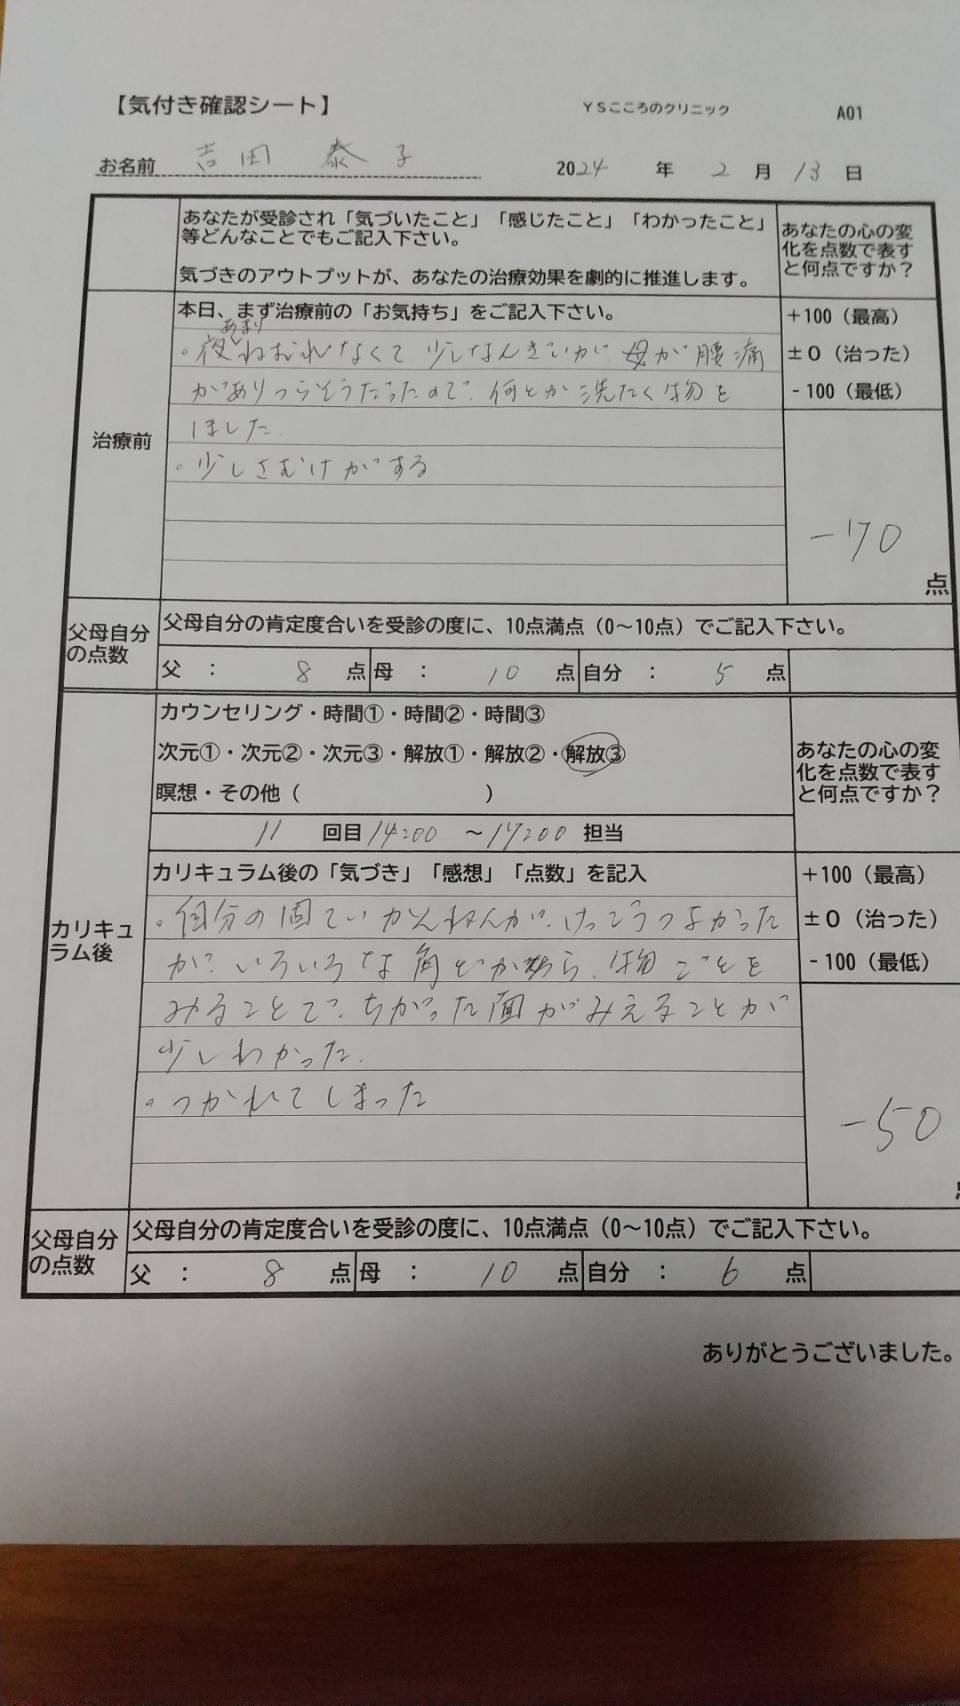 【気付き確認シート】 YSこころのクリニック A01
お名前 吉田 泰子 2024 年 2 月 13 日
あなたが受診され「気づいたこと」「感じたこと」「わかったこと」
等どんなことでもご記入下さい。
気づきのアウトプットが、あなたの治療効果を劇的に推進します。
あなたの心の変
化を点数で表す
と何点ですか？
治療前
本日、まず治療前の「お気持ち」をご記入下さい。
あまり
・夜ねむれなくて、少しなんぎいが、母が腰痛
がありつらそうだったので、何とか洗たく物を
しました。
・少しさむけがする
+100（最高）
±0（治った）
-100（最低）
-70
点
父母自分
の点数
父母自分の肯定度合いを受診の度に、10点満点（0〜10点）でご記入下さい。
父 ： 8 点 母 ： 10 点 自分 ： 5 点
カリキュ
ラム後
カウンセリング・時間①・時間②・時間③
次元①・次元②・次元③・解放①・解放②・解放③
瞑想・その他（ ）
11 回目 14:00 〜17:00 担当
あなたの心の変
化を点数で表す
と何点ですか？
カリキュラム後の「気づき」「感想」「点数」を記入
・自分の固ていかんねんが、けっこうつよかった
が、いろいろな角どから、物ごとを
みることで、ちがった面がみえることが
少しわかった。
・つかれてしまった
+100（最高）
±0（治った）
-100（最低）
-50
父母自分
の点数
父母自分の肯定度合いを受診の度に、10点満点（0〜10点）でご記入下さい。
父 ： 8 点 母 ： 10 点 自分 ： 6 点
ありがとうございました。